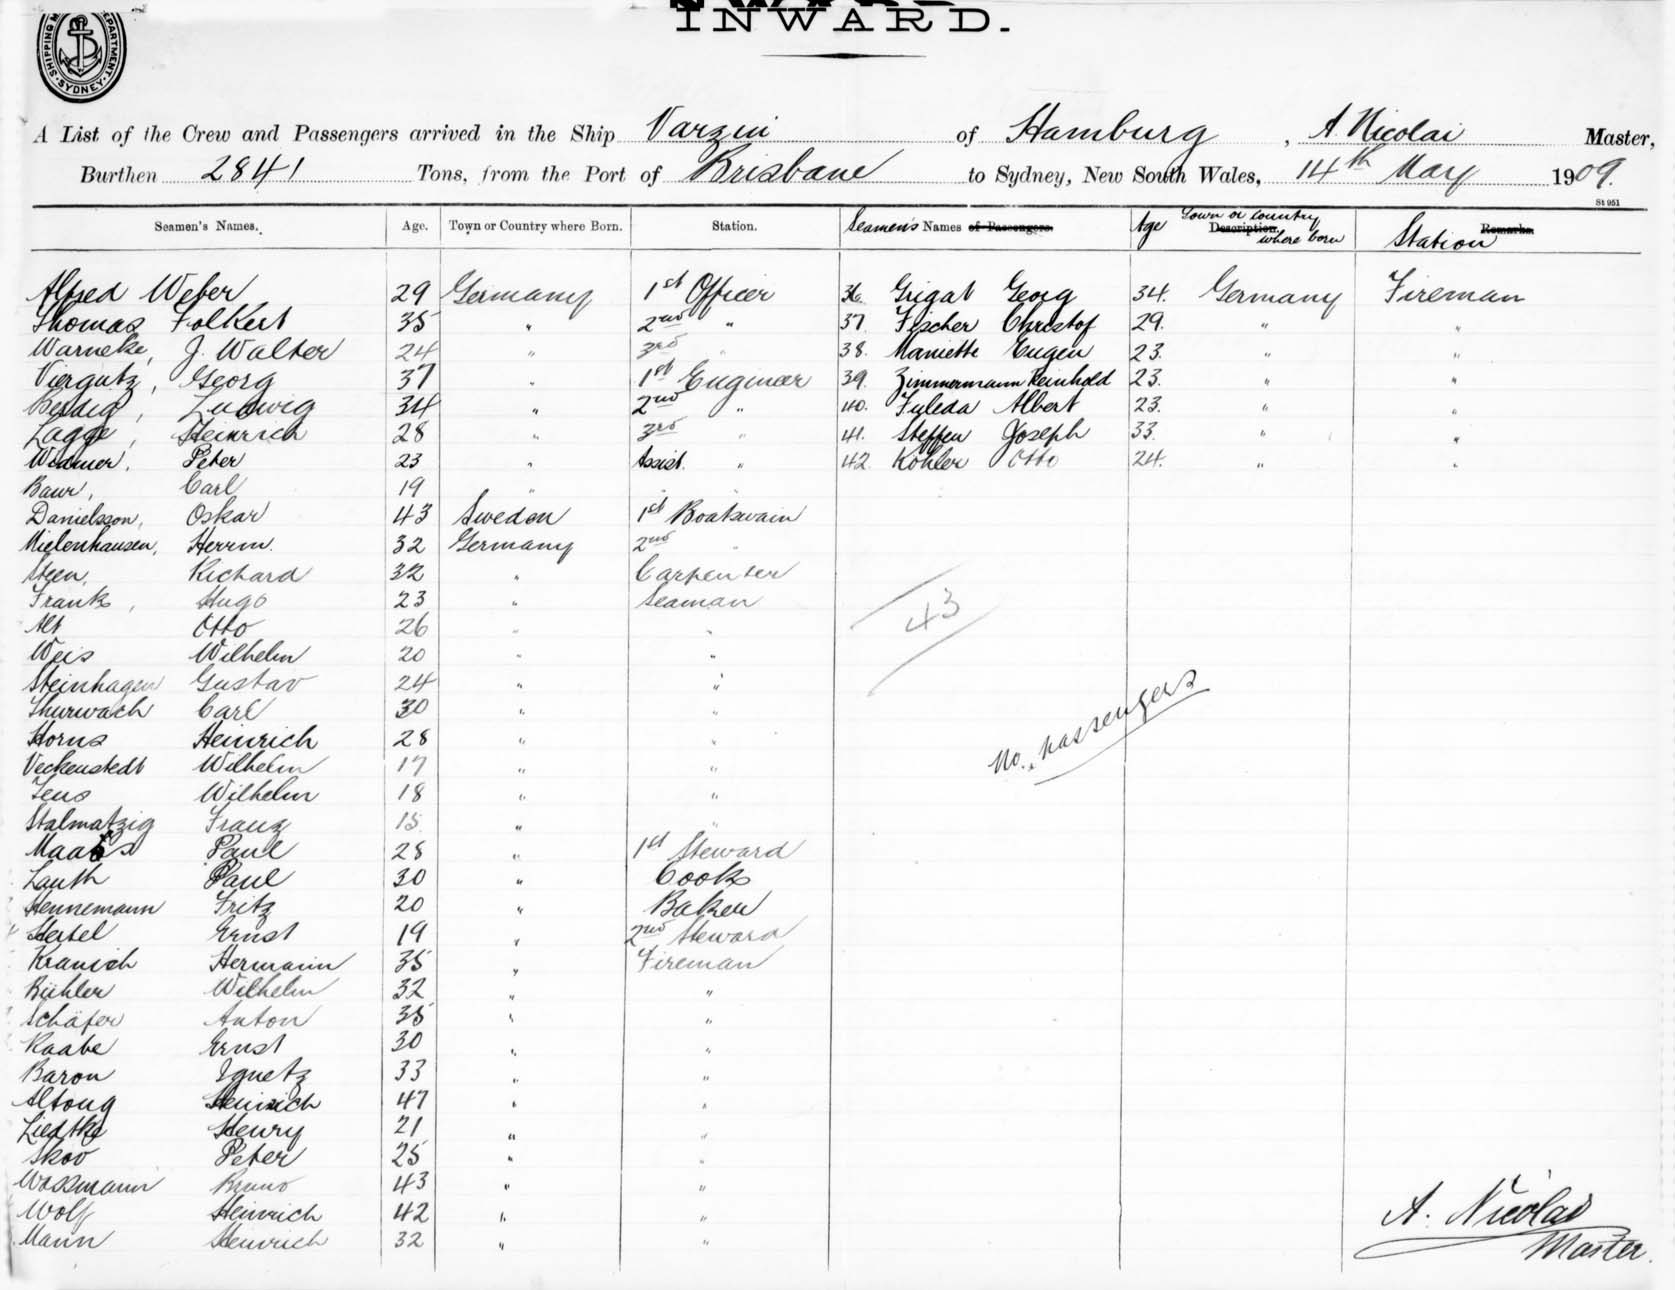 INWARD.
SHIPPING DEPARTMENT. SYDNEY
A List of the Crew and Passengers arrived in the Ship Varzin of Hamburg, A. Nicolai Master,
Burthen 2841 Tons, from the Port of Brisbane to Sydney, New South Wales, 14th May 1909.
St 951
Seamen's Names. Age. Town or Country where Born. Station. Seamen's Names of Passengers. Age Town or Country where born Description. Station Remarks.
Alfred Weber 29 Germany 1st Officer 36. Grigat Georg 34. Germany Fireman
Thomas Folkert 35 " 2nd " 37. Fischer Christof 29. " "
Warneke, J. Walter 24 " 3rd " 38. Maniette Eugen 23. " "
Viergutz, Georg 37 " 1st Engineer 39. Zimmermann Reinhold 23. " "
Berdig, Ludwig 34 " 2nd " 40. Fuleda Albert 23. " "
Lagge, Heinrich 28 " 3rd " 41. Steffen Joseph 33. " "
Widmer, Peter 23 " Assist. " 42. Köhler Otto 24. " "
Baur, Carl 19 " " "
Danielsson, Oskar 43 Sweden 1st Boatswain
Mielenhausen, Herrm. 32 Germany 2nd "
Steen, Richard 32 " Carpenter
Frank, Hugo 23 " Seaman
Alt Otto 26 " "
43
Weis Wilhelm 20 " "
Steinhagen Gustav 24 " "
Thurwach Carl 30 " "
No. passengers
Horns Heinrich 28 " "
Veckenstedt Wilhelm 17 " "
Jens Wilhelm 18 " "
Stalmatzig Franz 15 " "
Maass Paul 28 " 1st Steward
Lauth Paul 30 " Cook
Hennemann Fritz 20 " Baker
Hertel Ernst 19 " 2nd Steward
Kranich Hermann 35 " Fireman
Bühler Wilhelm 32 " "
Schäfer Anton 35 " "
Raabe Ernst 30 " "
Baron Ignetz 33 " "
Altong Heinrich 47 " "
Liedtke Henry 21 " "
Skov Peter 25 " "
Wossmann Bruno 43 " "
Wolf Heinrich 42 " "
Mann Heinrich 32 " "
A. Nicolai
Master.